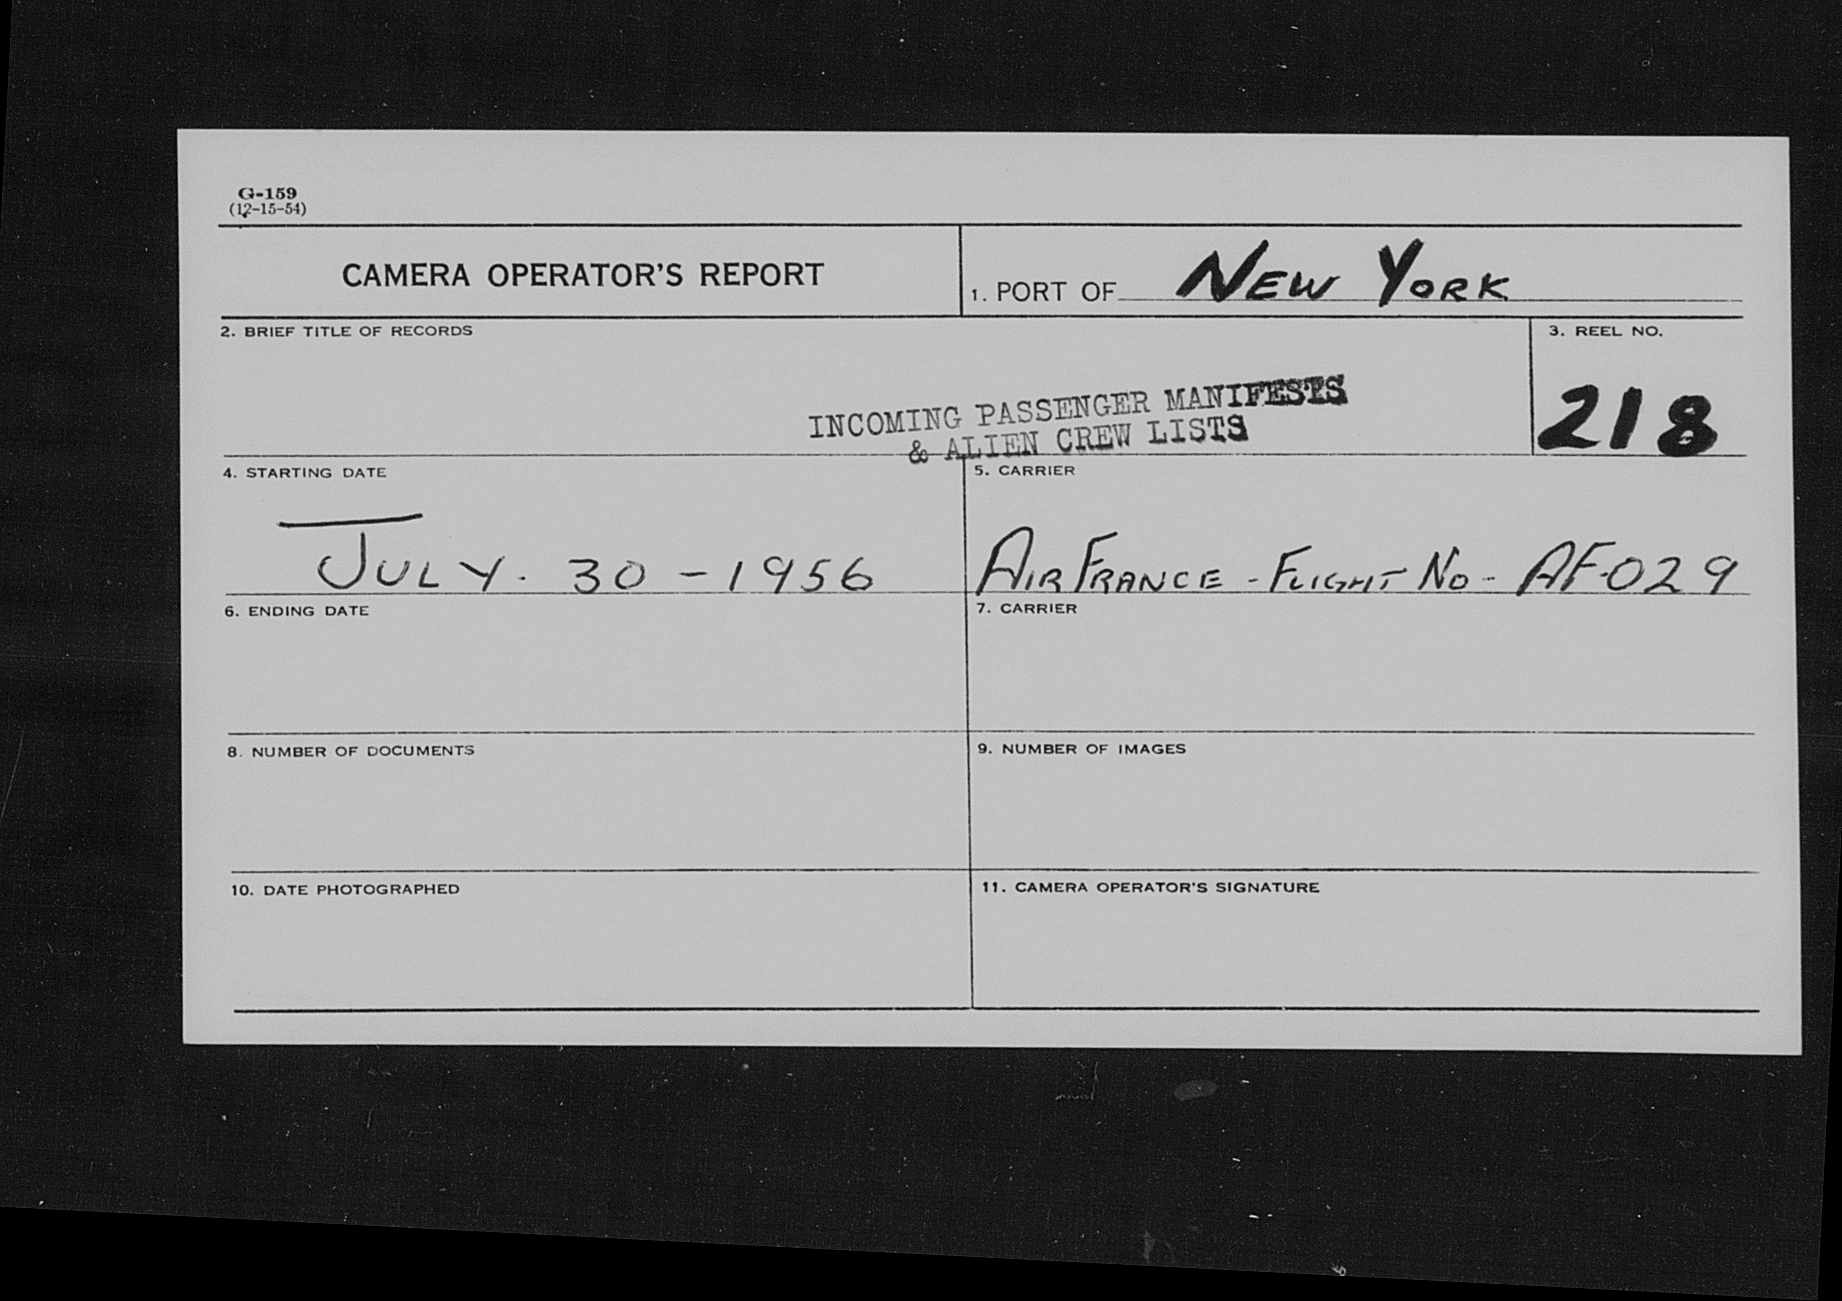 G-159
(12-15-54)
CAMERA OPERATOR'S REPORT
1. PORT OF NEW YORK
2. BRIEF TITLE OF RECORDS
INCOMING PASSENGER MANIFESTS
& ALIEN CREW LISTS
3. REEL NO.
218
4. STARTING DATE
JULY. 30 - 1956
5. CARRIER
AIR FRANCE - FLIGHT NO - AF-029
6. ENDING DATE
7. CARRIER
8. NUMBER OF DOCUMENTS
9. NUMBER OF IMAGES
10. DATE PHOTOGRAPHED
11. CAMERA OPERATOR'S SIGNATURE